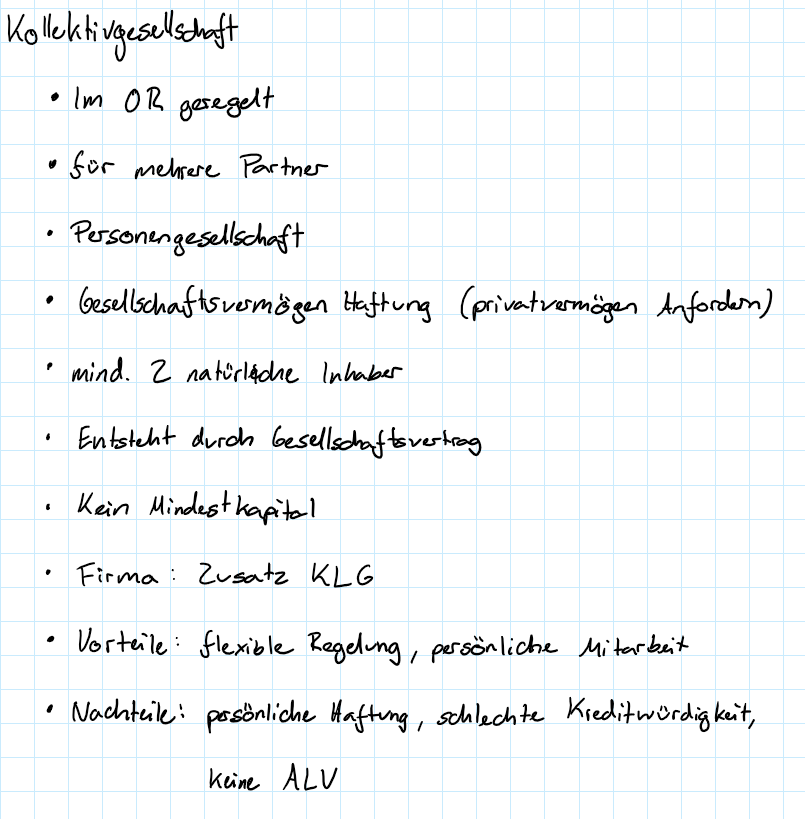 Kollektivgesellschaft
• Im OR geregelt
• für mehrere Partner
• Personengesellschaft
• Gesellschaftsvermögen Haftung (privatvermögen Anfordern)
• mind. 2 natürliche Inhaber
• Entsteht durch Gesellschaftsvertrag
• Kein Mindestkapital
• Firma: Zusatz KLG
• Vorteile: flexible Regelung, persönliche Mitarbeit
• Nachteile: persönliche Haftung, schlechte Kreditwürdigkeit,
keine ALV